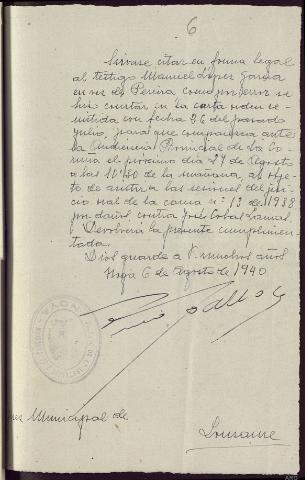 6
Sírvase citar en forma legal
al testigo Manuel López García
en vez de Pereira como por error se
hizo constar en la carta orden re-
mitida con fecha 26 del pasado
Julio, para que comparezca ante
la Audiencia Provincial de La Co-
ruña el próximo dia 29 de Agosto
a las 11'30 de la mañana, al obje-
to de asistir a las sesiones del jui-
cio oral de la causa nº 13 de 1938
por daños contra José Lamas.
Devolverá la presente cumplimen-
tada.
Dios guarde a V. muchos años
Noya 6 de Agosto de 1940
NOYA
Municipal de
Lousame